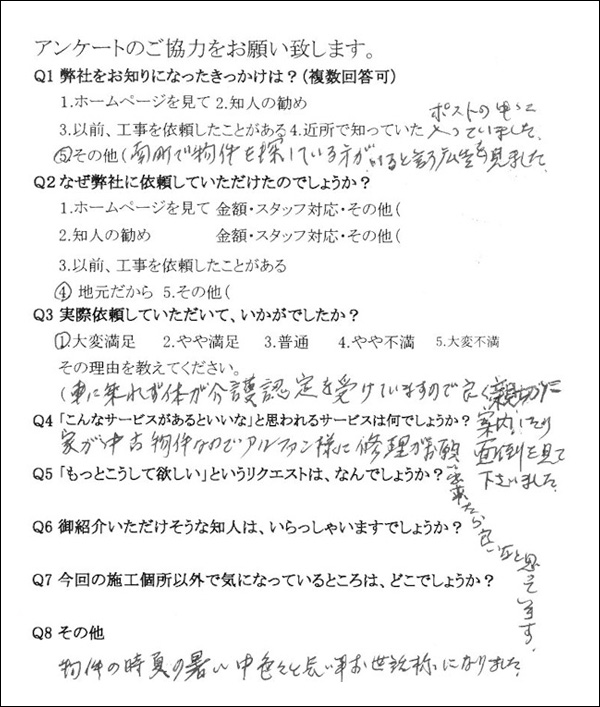 アンケートのご協力をお願い致します。
Q1 弊社をお知りになったきっかけは？（複数回答可）
1.ホームページを見て 2.知人の勧め
3.以前、工事を依頼したことがある 4.近所で知っていた
ポストの中に
入っていました。
⑤その他（南所で物件を探している方がいると言う広告を見ました。
Q2 なぜ弊社に依頼していただけたのでしょうか？
1.ホームページを見て 金額・スタッフ対応・その他（
2.知人の勧め 金額・スタッフ対応・その他（
3.以前、工事を依頼したことがある
④ 地元だから 5.その他（
Q3 実際依頼していただいて、いかがでしたか？
①大変満足 2.やや満足 3.普通 4.やや不満 5.大変不満
その理由を教えてください。
（車に乗れず体が介護認定を受けていますので良く親切に
案内したり
面倒を見て
下さいました。
Q4 「こんなサービスがあるといいな」と思われるサービスは何でしょうか？
家が中古物件なのでアルファン様に修理がお願い
出来たら良いなと思っています。
Q5 「もっとこうして欲しい」というリクエストは、なんでしょうか？
Q6 御紹介いただけそうな知人は、いらっしゃいますでしょうか？
Q7 今回の施工個所以外で気になっているところは、どこでしょうか？
Q8 その他
物件の時夏の暑い中色々と長い事お世話様になりました。